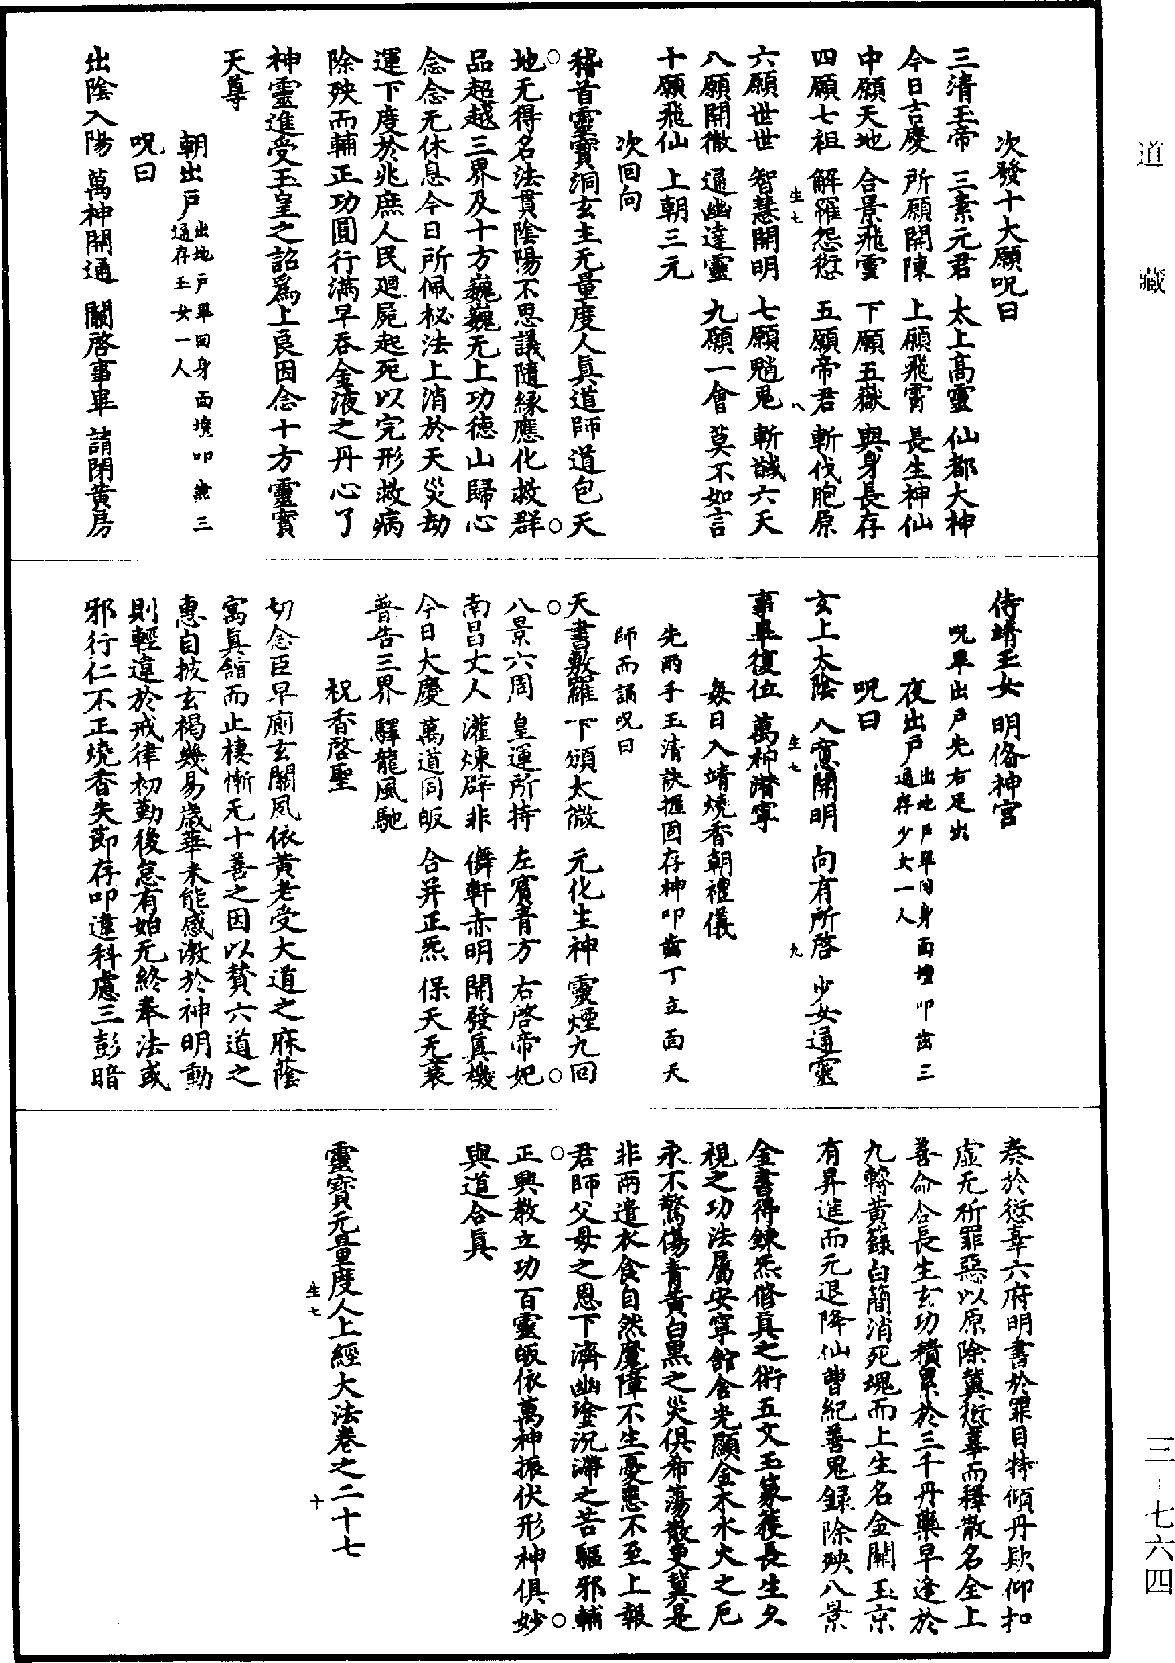 道藏
三-七六四
次發十大願呪曰
三清玉帝 三素元君 太上高靈 仙都大神
今日吉慶 所願開陳 上願飛霄 長生神仙
中願天地 合景飛靈 下願五嶽 與身長存
四願七祖 解羅怨愆 五願帝君 斬伐胞原
生七 八
六願世世 智慧開明 七願魈鬼 斬馘六天
八願開徹 通幽達靈 九願一會 莫不如言
十願飛仙 上朝三元
次回向
稽首靈寶洞玄主无量度人真道師道包天
地无得名法貫陰陽不思議隨緣應化救群
品超越三界及十方巍巍无上功德山歸心
念念无休息今日所佩秘法上消於天災劫
運下度於兆庶人民廻屍起死以完形救病
除殃而輔正功圓行滿早吞金液之丹心了
神靈進受玉皇之詔爲上良因念十方靈寶
天尊
朝出戶 出地戶畢回身面壇叩齒三
通存玉女一人
呪曰
出陰入陽 萬神開通 關啓事畢 請閉黄房
侍靖玉女 明俻神宮
呪畢出戶先右足出
夜出戶 出地戶畢回身面壇叩齒三
通存少女一人
呪曰
玄上太陰 八窓開明 向有所啓 少女通靈
生七 九
事畢復位 萬神潜寧
每日入靖燒香朝禮儀
先兩手玉清訣握固存神叩齒丁立面天
師而誦呪曰
天書敷羅 下頒太微 元化生神 靈煙九回
八景六周 皇運所持 左賔青方 右啓帝妃
南昌丈人 灌煉辟非 僻軒赤明 開發真機
今日大慶 萬道同皈 合并正炁 保天无衰
普告三界 驛龍風馳
祝香啓聖
切念臣早廁玄關夙依黃老受大道之庥蔭
寓真館而止棲慚无十善之因以贊六道之
惠自披玄褐幾易歲華未能感激於神明動
則輕違於戒律初勤後怠有始无終奉法或
邪行仁不正燒香失節存叩違科慮三彭暗
奏於愆辜六府明書於罪目特傾丹欵仰扣
虛无祈罪惡以原除冀愆辜而釋散名全上
善命合長生玄功積累於三千丹藥早逢於
九轉黄籙白簡消死魂而上生名金闕玉京
有昇進而无退降仙曹紀善鬼錄除殃八景
金書得鍊炁修真之術五文玉篆獲長生久
視之功法屬安寧館舍光顯金木水火之厄
永不驚傷青黃白黒之災俱希蕩散更冀是
非兩遣衣食自然魔障不生憂患不至上報
君師父母之恩下濟幽塗沉滯之苦驅邪輔
正興教立功百靈皈依萬神振伏形神俱妙
與道合真
靈寶无量度人上經大法卷之二十七
生七 十